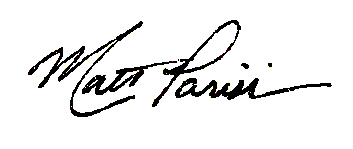 Matt Parisi